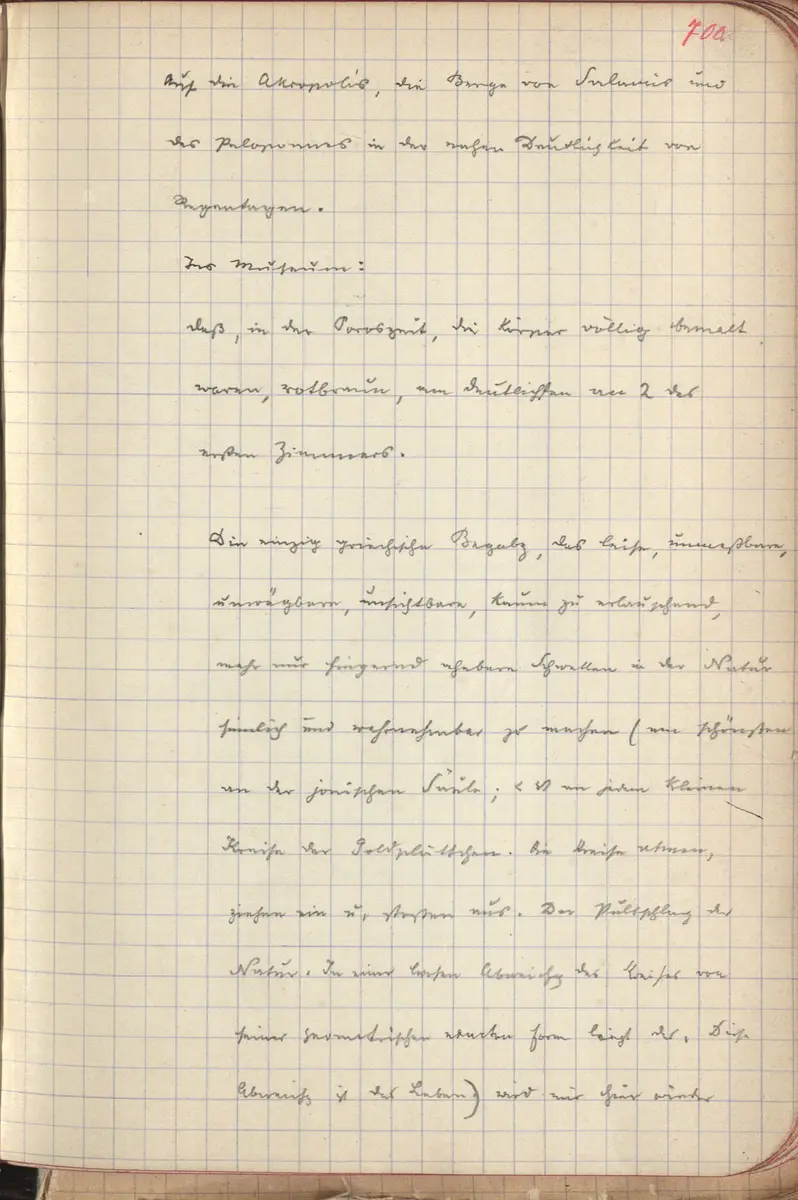 700
auf die Akropolis, die Berge von Salamis und
des Peloponnes in der nahen Deutlichkeit von
Regentagen.
Im Museum:
daß, in der Poroszeit, die Körper völlig bemalt
waren, rotbraun, am deutlichsten an 2 des
ersten Zimmers.
Die einzig griechische Begabg, das leise, unmeßbare,
unwägbare, unsichtbare, kaum zu erlauschend,
mehr nur fingernd Schwellen in der Natur
sinnlich und wahrnehmbar zu machen (am schönsten
an der jonischen Säule; an jedem kleinen
Kreise der Goldplättchen. Die Kreise atmen,
ziehen ein u. stoßen aus. Der Pulsschlag der
Natur. In einer leisen Abweichg des Kreises von
seiner geometrischen exacten Form liegt das. Diese
Abweichg ist das Leben) wird mir hier wieder